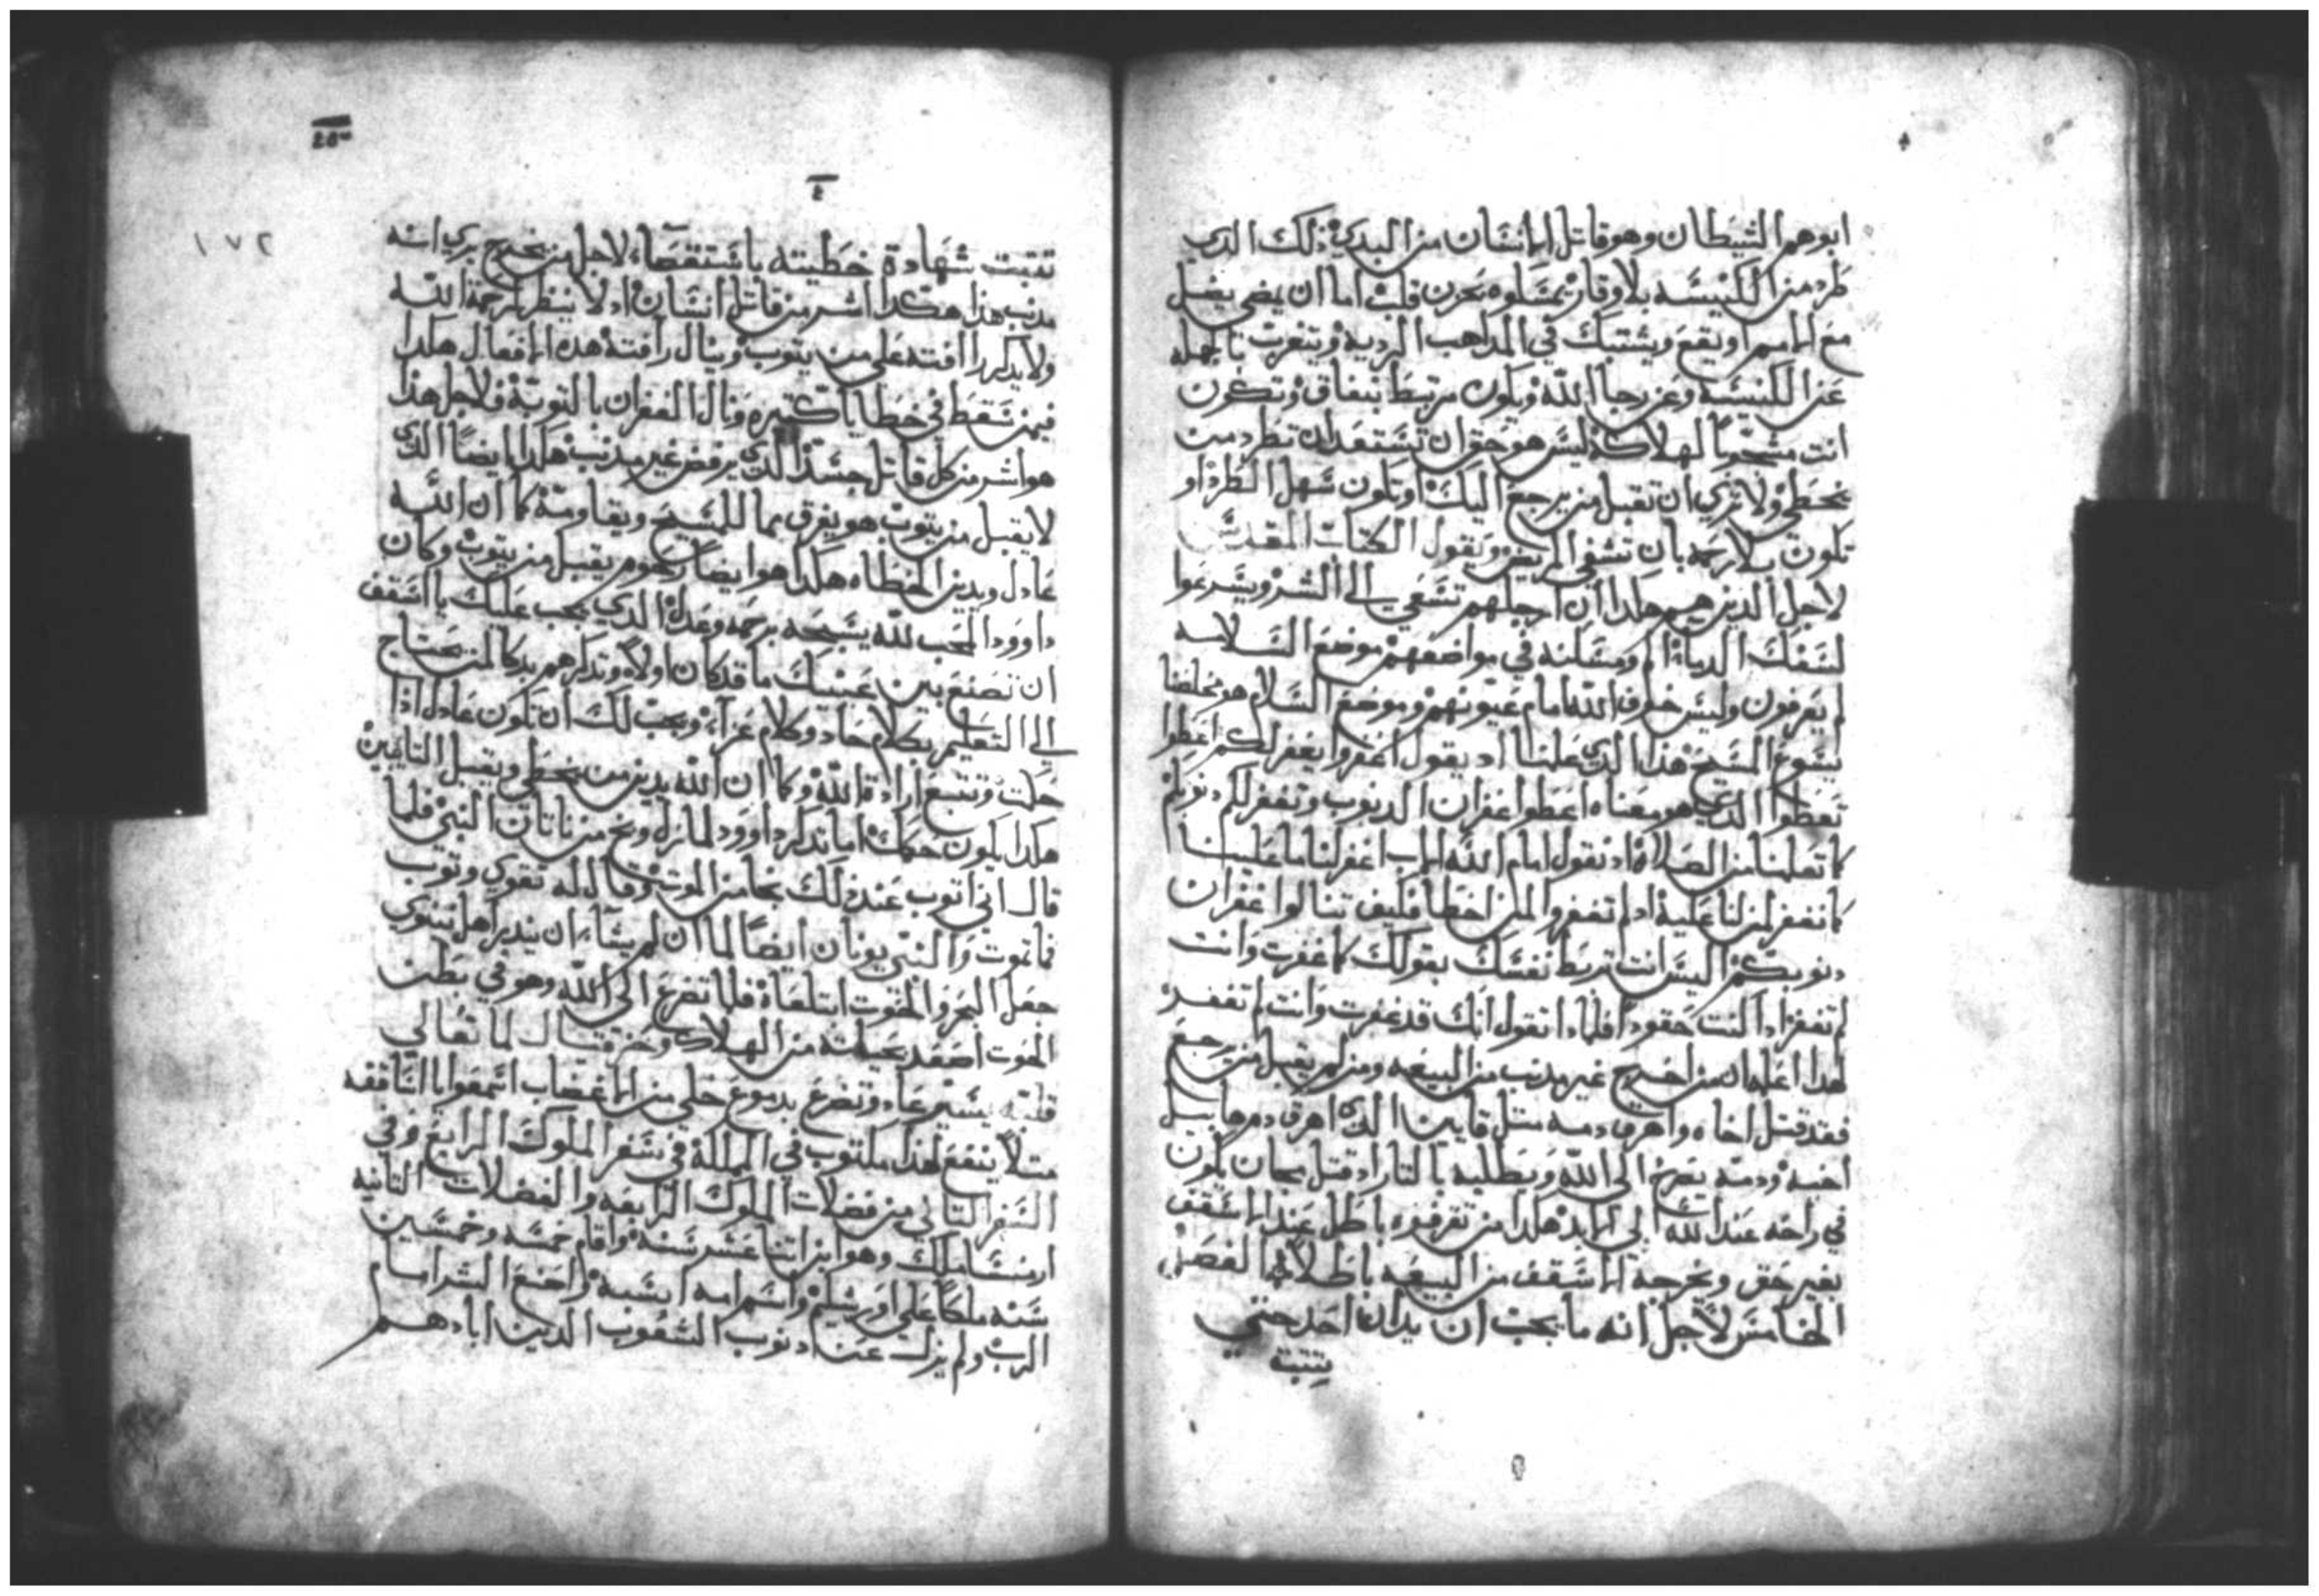 ابوهم الشيطان وهو قاتل الانسان من البدي ذلك الدي
طرد من الكنيسه بلا وقار تمسلوه بحزن قلب اما ان يمضي يضل
مع الامم او يقع ويشتبك في المداهب الرديه ويتغرب بالجمله
عن الكنيسه وعن رجا الله ويكون مرتبط بنفاق وتكون
انت مشجوبا لهلاكه ليس هو حق ان تستعد ان تطرد من
يخطي ولا تري ان تقبل من يرجع اليك او تكون سهل الطرد او
تكون بلا رحمه بان تشفي المريض ويقول الكتاب المقدس
لاجل الدين هم هكدا ان ارجلهم تسعي الي الشر ويسرعوا
لسفك الدماء ومسكنه في مواضعهم موضع السلامه
لم يعرفون وليس خوف الله امام عيونهم وموضع السلام هو مخلصنا
يسوع المسيح هدا الدي علمنا اد يقول اغفروا يغفر لكم اعطوا
تعطوا الدي هو معناه اعطوا غفران الدنوب وتغفر لكم دنوبكم
كما تعلمنا من الصلاه اد نقول امام الله الاب اغفر لنا ما علينا
كما نغفر لمن لنا عليه اد لم تغفروا لمن اخطا فكيف تنالوا غفران
دنوبكم اليس انت تربط نفسك بقولك كما غفرت وانت
لم تغفر ادا كنت حقودا فلمادا تقول انك قد غفرت وانت لم تغفر
لهدا اعلم ان من اخرج غير مدنب من البيعه ومن لم يقبل من يرجع
فقد قتل اخاه واهرق دمه متل قايين الدي اهرق دم هابيل
اخيه ودمه يصرخ الي الله ويطلبه بالتار اد قتل مجان يكون
في راحه عند الله الي الابد هكدا من تفرفوه باطل عند الاسقف
بغير حق ويخرجه الاسقف من البيعه باطلا الفصل
الخامس لاجل انه ما يجب ان يدان احد حتي
تتبت
تتبت شهادة خطيته باستقصاء لاجل من يخرج بري انه
مدنب هدا هكدا اشر من قاتل انسان اد لا ينظر لرحمة الله
ولا يدكر رافته علي من يتوب وينال رافته هده الافعال هكدا
فيمن سقط في خطايا كتيره ونال الغفران بالتوبة فلاجل هدا
هو اشر من كل قاتل جسد الدي يرفض غير مدنب هكدا ايضا الدي
لا يقبل من يتوب هو يفرق مما للمسيح ويقاومه كما ان الله
عادل ويدين الخطاه هكدا هو ايضا رحوم يقبل من يتوب وكان
داوود المحب لله يسبحه برحمه وعدل الدي يجب عليك يا اسقف
ان تصنع بين عينيك ما قد كان اولا وتدكرهم بدكا لمن يحتاج
الي التعليم بكلام حاد وكلام عزاء ويجب لك ان تكون عادل ادا
حكمت وتتبع ارادة الله وكما ان الله يدين من يخطي ويقبل التايبين
هكدا يكون حكمك اما تدكر داوود لما زل وبخ من ناتان النبي فلما
قال اني اتوب عند دلك نجا من الموت وقال له تقوي وتوب
فما تموت والنبي يونان ايضا لما ان لم يشاء ان يندر اهل نينوي
جعل البحر والحوت ابتلعاه فلما تضرع الي الله وهو في بطن
الحوت اصعد بحياته من الهلاك وحزقيال لما تعالي
قلبه يسير عاد وتضرع بدموع خلي من الاغضاب اسمعوا يا اساقفه
متلا ينفع لهدا مكتوب في المملكة في سفر الملوك الرابع وفي
السفر التاني من فضلات الملوك الرابعه والفضلات التانيه
ار منسا ملك وهو ابن اتنا عشر سنه واقام خمسه وخمسين
سنه ملكا علي اورشليم واسم امه ابسبه واصنع الشر امام
الرب ولم يزل عن دنوب الشعوب الدين ابادهم
١٧٢